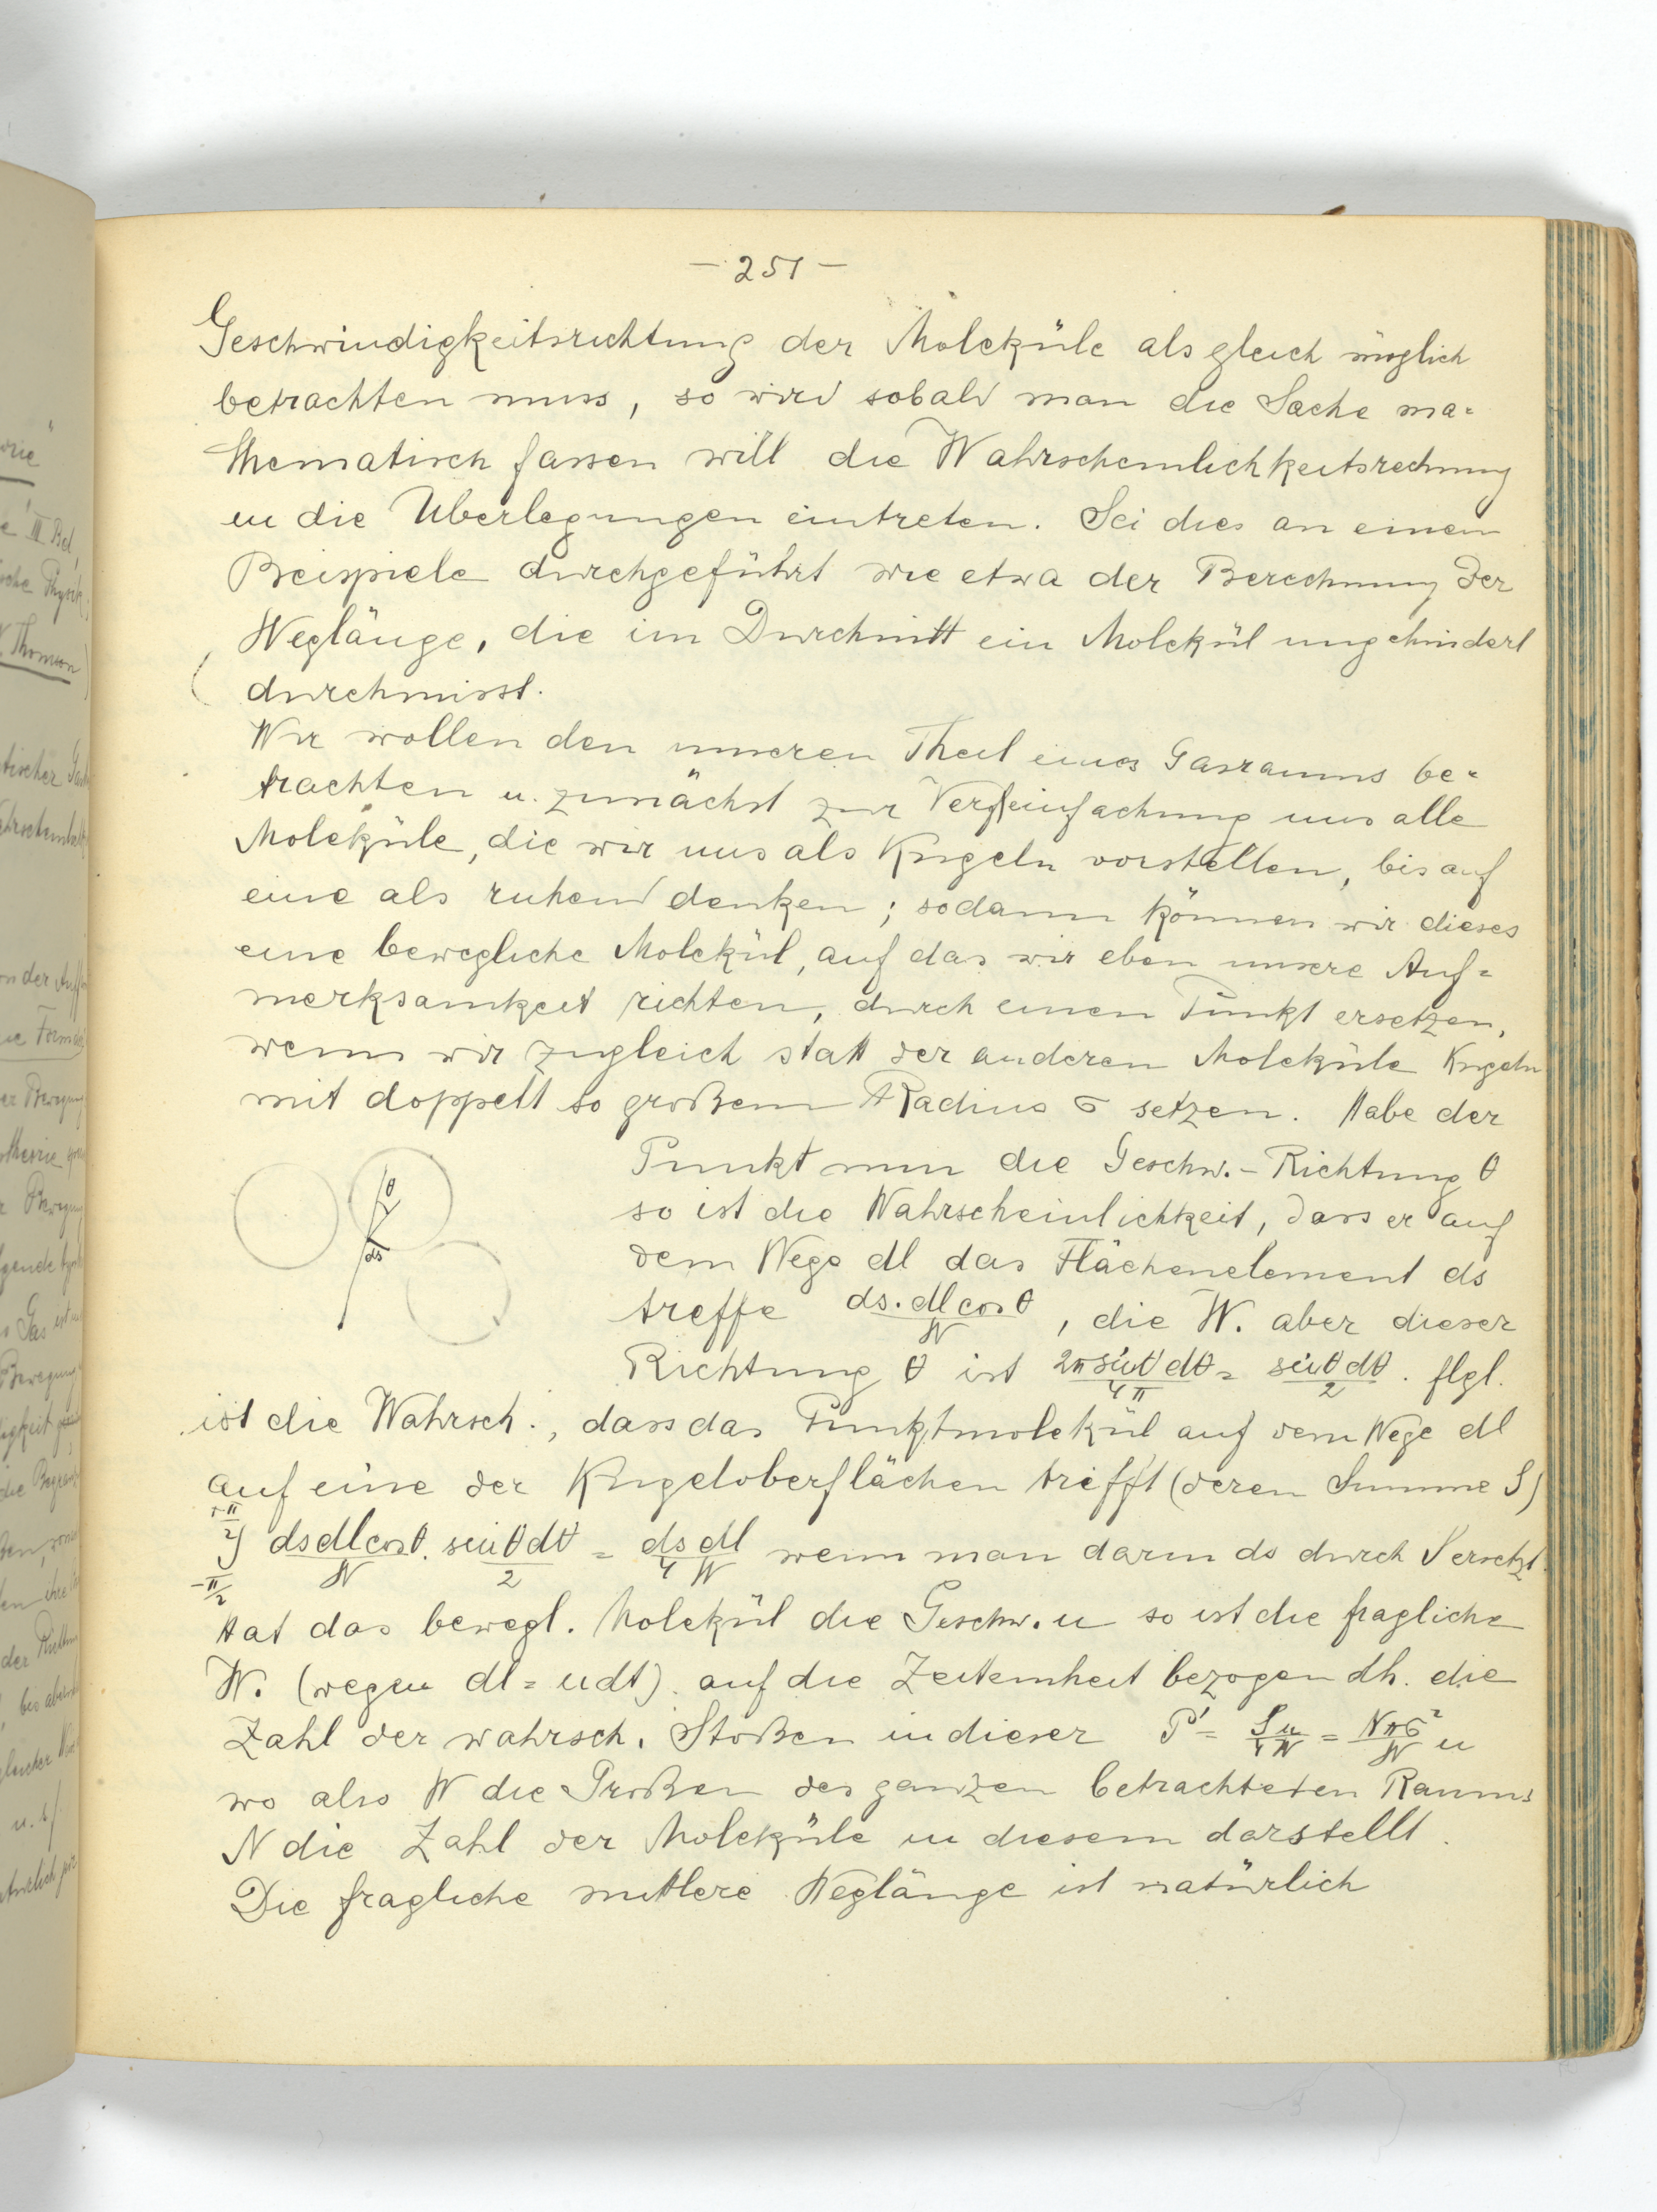 - 251 -
Geschwindigkeitsrichtung der Moleküle als gleich möglich
betrachten muss, so wird sobald man die Sache ma=
thematisch fassen will die Wahrscheinlichkeitsrechnung
in die Überlegungen eintreten. Sei dies an einem
Beispiele durchgeführt wie etwa der Berechnung der
Weglänge, die im Durchnitt ein Molekül ungehindert
durchmisst.
Wir wollen den inneren Theil eines Gasraums be=
trachten u. zunächst zur Vereinfachung uns alle
Moleküle, die wir uns als Kugeln vorstellen, bis auf
eine als ruhend denken; sodann können wir dieses
eine bewegliche Molekül, auf das wir eben unsere Auf=
merksamkeit richten, durch einen Punkt ersetzen,
wenn wir zugleich statt der anderen Moleküle Kugeln
mit doppelt so großem Radius σ setzen. Habe der
Punkt nun die Geschw.-Richtung θ
so ist die Wahrscheinlichkeit, dass er auf
dem Wege dl das Flächenelement ds
treffe ds.dl cos θ / W, die W. aber dieser
Richtung θ ist 2π sin θ dθ / 4π = sin θ dθ / 2. flgl.
θ
ds
ist die Wahrsch., dass das Punktmolekül auf dem Wege dl
auf eine der Kugeloberflächen trifft (deren Summe S)
+π/2 ∫ -π/2 ds dl cos θ / W . sin θ dθ / 2 = ds dl / 4 W wenn man darin ds durch S ersetzt.
Hat das bewegl. Molekül die Geschw. u so ist die fragliche
W. (wegen dl = udt) auf die Zeiteinheit bezogen dh. die
Zahl der wahrsch. Stoßen in dieser P' = S u / 4 W = N π σ² / W u
wo also W die Großen des ganzen betrachteten Raums
N die Zahl der Moleküle in diesem darstellt.
Die fragliche mittlere Weglänge ist natürlich